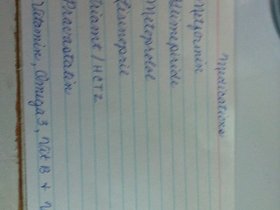 Medications
Metformin
Glimepiride
Metoprolol
Lisinopril
Triamt / HCTZ
Pravastatin
Vitamin, Omega 3, Vit B +